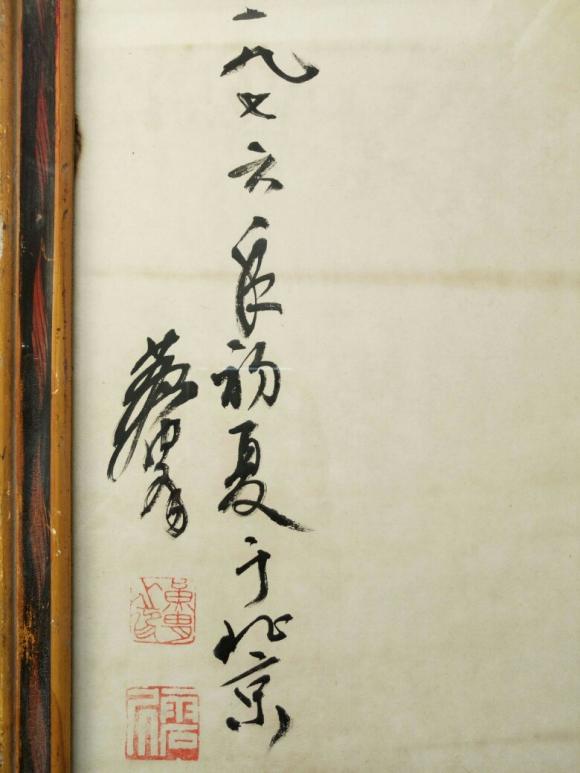 一九七六年初夏于北京
黄胄